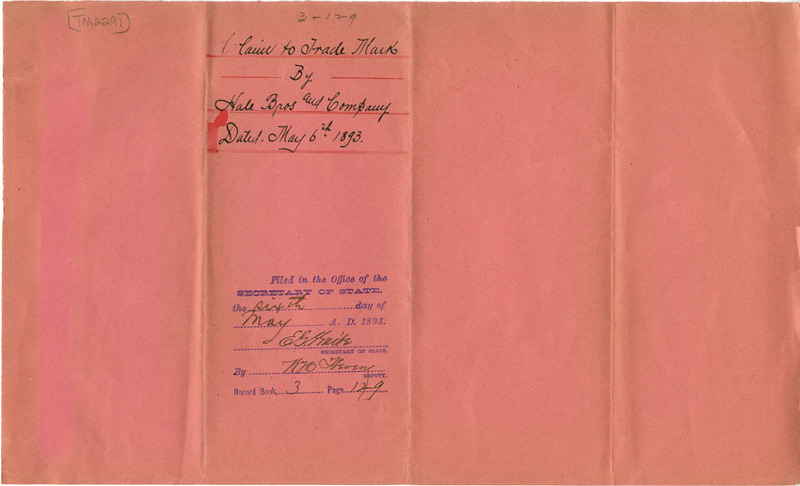 [TM2291]
3-129
Claim to Trade Mark
By
Hale Bros and Company
Dated. May 6th 1893.
Filed in the Office of the
SECRETARY OF STATE,
the sixth day of
May A. D. 1893.
E G Waite
SECRETARY OF STATE,
By
DEPUTY.
Record Book, 3 Page, 129